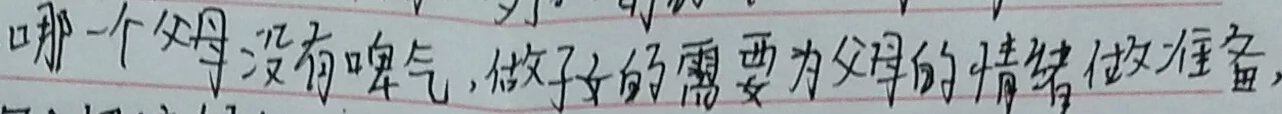 哪一个父母没有啤气,做子女的需要为父母的情绪做准备,